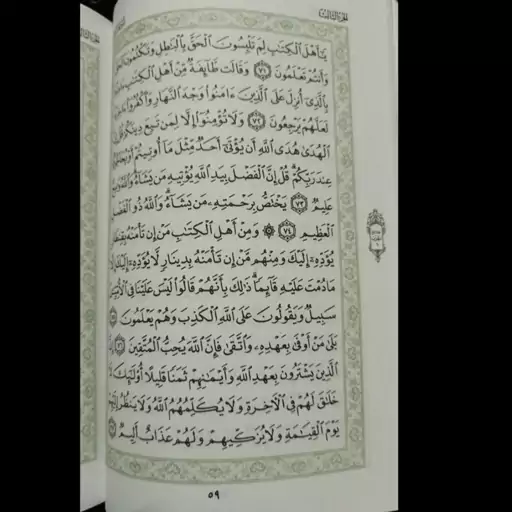 الجزء الثالث
يَٰٓأَهْلَ ٱلْكِتَٰبِ لِمَ تَلْبِسُونَ ٱلْحَقَّ بِٱلْبَٰطِلِ وَتَكْتُمُونَ
وَأَنتُمْ تَعْلَمُونَ ٧١ وَقَالَت طَّآئِفَةٌ مِّنْ أَهْلِ ٱلْكِتَٰبِ
بِٱلَّذِىٓ أُنزِلَ عَلَى ٱلَّذِينَ ءَامَنُوا۟ وَجْهَ ٱلنَّهَارِ وَٱكْفُرُوٓا۟
لَعَلَّهُمْ يَرْجِعُونَ ٧٢ وَلَا تُؤْمِنُوٓا۟ إِلَّا لِمَن تَبِعَ دِينَكُمْ قُلْ
ٱلْهُدَىٰ هُدَى ٱللَّهِ أَن يُؤْتَىٰٓ أَحَدٌ مِّثْلَ مَآ أُوتِيتُمْ
عِندَ رَبِّكُمْ قُلْ إِنَّ ٱلْفَضْلَ بِيَدِ ٱللَّهِ يُؤْتِيهِ مَن يَشَآءُ وَٱللَّهُ
عَلِيمٌ ٧٣ يَخْتَصُّ بِرَحْمَتِهِۦ مَن يَشَآءُ وَٱللَّهُ ذُو ٱلْفَضْلِ
ٱلْعَظِيمِ ٧٤ ۞ وَمِنْ أَهْلِ ٱلْكِتَٰبِ مَنْ إِن تَأْمَنْهُ
يُؤَدِّهِۦٓ إِلَيْكَ وَمِنْهُم مَّنْ إِن تَأْمَنْهُ بِدِينَارٍ لَّا يُؤَدِّهِۦٓ إِلَيْكَ
مَا دُمْتَ عَلَيْهِ قَآئِمًا ذَٰلِكَ بِأَنَّهُمْ قَالُوا۟ لَيْسَ عَلَيْنَا فِى
سَبِيلٌ وَيَقُولُونَ عَلَى ٱللَّهِ ٱلْكَذِبَ وَهُمْ يَعْلَمُونَ
بَلَىٰ مَنْ أَوْفَىٰ بِعَهْدِهِۦ وَٱتَّقَىٰ فَإِنَّ ٱللَّهَ يُحِبُّ ٱلْمُتَّقِينَ
ٱلَّذِينَ يَشْتَرُونَ بِعَهْدِ ٱللَّهِ وَأَيْمَٰنِهِمْ ثَمَنًا قَلِيلًا أُو۟لَٰٓئِكَ
خَلَٰقَ لَهُمْ فِى ٱلْءَاخِرَةِ وَلَا يُكَلِّمُهُمُ ٱللَّهُ وَلَا يَنظُرُ
يَوْمَ ٱلْقِيَٰمَةِ وَلَا يُزَكِّيهِمْ وَلَهُمْ عَذَابٌ أَلِيمٌ
٥٩